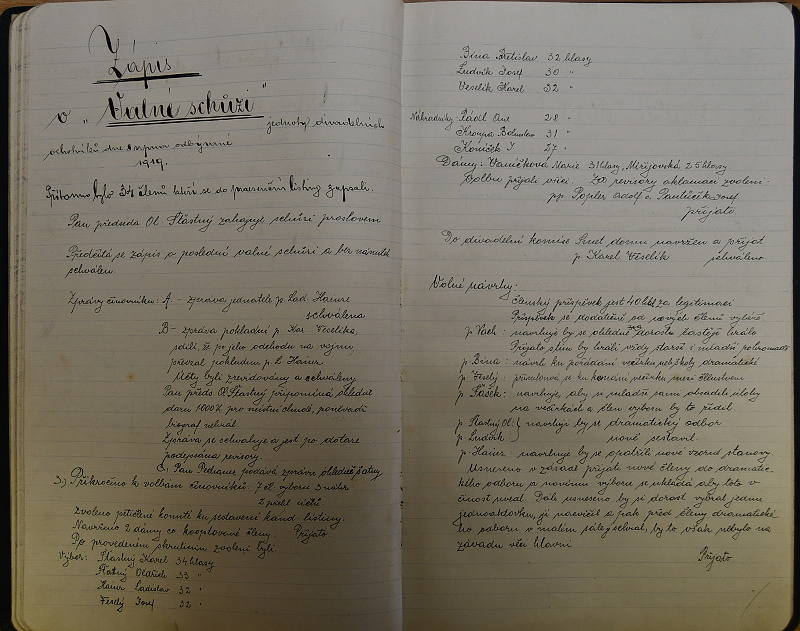 Zápis
o "Valné schůzi"
jednoty divadelních
ochotníků dne srpna odbývané
1919.
Přítomno bylo 34 členů kteří se do presenční listiny zapsali.
Pan předseda Ol. Šťastný zahajuje schůzi proslovem
Předčítá se zápis o poslední valné schůzi a bez námitek
schválen.
Zprávy činovníků: A. - zpráva jednatele p. Lad. Hamr
schválena
B - zpráva pokladní p. Kar. Veselíka,
sdělil, že po jeho odchodu na vojnu
převzal pokladnu p. L. Hamr.
Účty byly zrevidovány a schváleny
Pan předs. Ol. Šťastný připomíná ohledně
daru 1000 K pro místní chudé, poněvadž
biograf nehrál.
Zpráva se schvaluje a jest po
podepsána revisory.
C, Pan podává zprávu ohledně šatny
3.) Přikročeno k volbám činovníků: 7 čl. výboru 3 náhr
2 účtů
Zvoleno pětičlené komité ku sestavení kand. listiny.
Navrženo 2 dámy co kooptované členy. Přijato
Po provedeném skrutiniu zvoleni byli
Výbor: Šťastný Karel 34 hlasy
Šťastný Oldřich 33 "
Hamr Ladislav 32 "
Veselý Josef 32 "
Bína Břetislav 32 hlasy
Ludvík Josef 30 "
Veselík Karel 32 "
Náhradníky: Pádl Ant 28 "
Kroupa Bohuslav 31 "
Koníček J. 27 "
Dámy: Vaníčková Marie 31 hlasy, 25 hlasy
Volbu přijali všici. Za revisory aklamací zvoleni:
pp. Popler Adolf a Pantůček Josef
přijato
Do divadelní komise domu navržen a přijat
p. Karel Veselík schváleno
Volné návrhy:
Členský příspěvek jest 40 hal za legitimaci
Příspěvek se dodatečně od nových členů vybíře
p. Vach: navrhuje by se ohledně dorostu častěji hrálo
Přijato s tím by hráli vždy starší i mladší pohromadě
p. Bína: návrh ku pořádání večírku dramatické
p. Veselý: přimlouvá se ku konání večírku mezi členstvem
p. Šášek: navrhuje, aby si mladší sami obsadili úlohy
na večírkách a člen výboru by to řídil
p. Šťastný Ol. } navrhují by se dramatický odbor
p. Ludvík } nově sestavil
p. Hamr: navrhuje by se opatřili nové vzorné stanovy
Usneseno v zásadě přijati nové členy do dramatic-
kého odboru a novému výboru se ukládá aby toto v
činost uvedl. Dále usneseno by si dorost vybral jednu
jednoaktovku, ji nacvičil a pak před členy dramatické-
ho odboru v malém sále sehrál, by to však nebylo na
závadu věci hlavní
Přijato